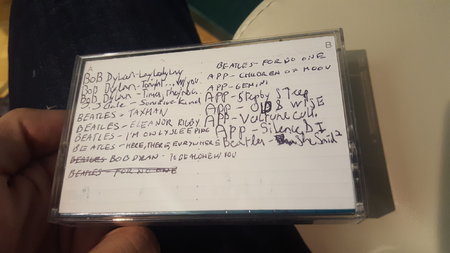 A
BOB Dylan - Lay lady lay
BOB Dylan - Tonight... you
BOB Dylan - Times, They're
Cale - Sensitive Kind
BEATLES - TAXMAN
BEATLES - ELEANOR RIGBY
BEATLES - I'M ONLY SLEEPING
BEATLES - HERE, THERE, EVERYWHERE
BEATLES BOB DYLAN - TO BE ALONE W YOU
BEATLES - FOR NO ONE
B
BEATLES - FOR NO ONE
APP - CHILDREN OF MOON
APP - GEMINI
APP - Step by STEP
APP - OLD & WISE
APP - Vulture Cult.
APP - Silence & I
Beatles -